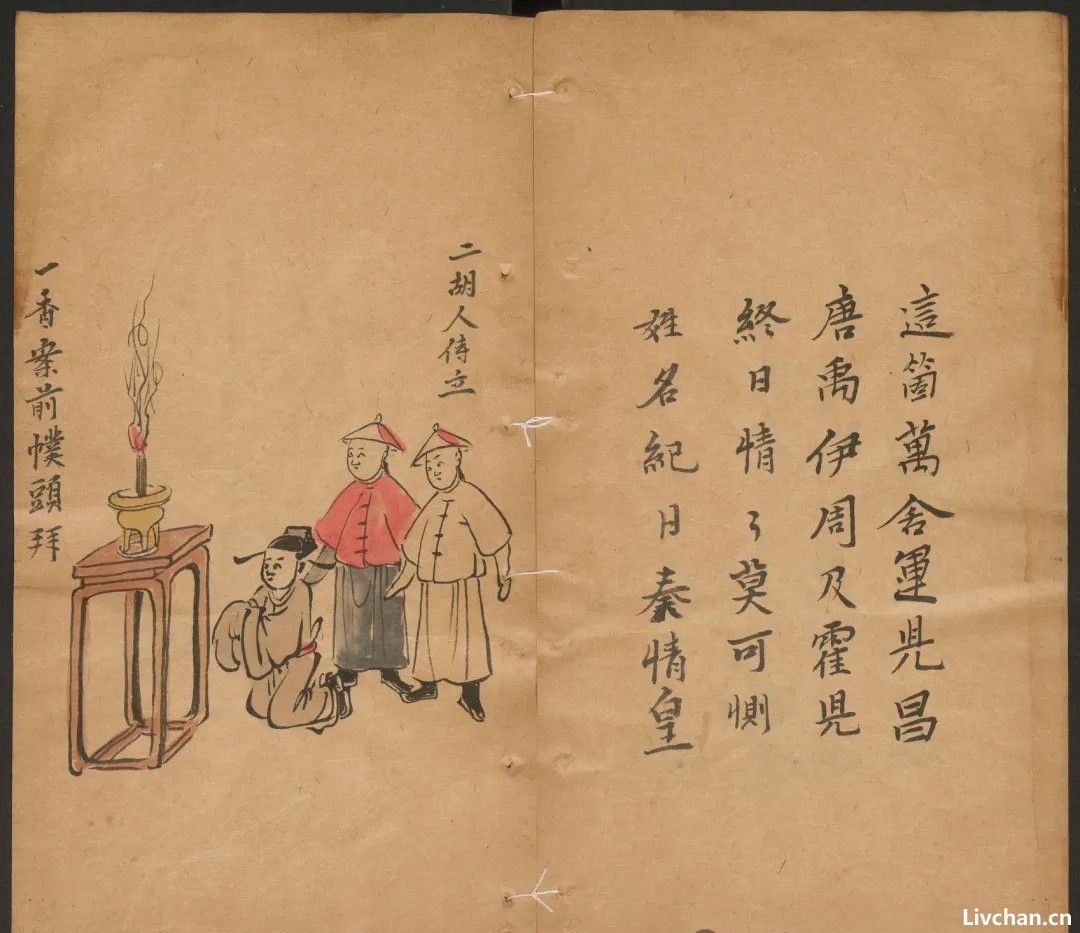 這箇萬舍運昌
唐禹伊周及霍
終日情々莫可惻
姓名紀日秦情皇
二胡人侍立
一香案前幞頭拜
Livchan.cn